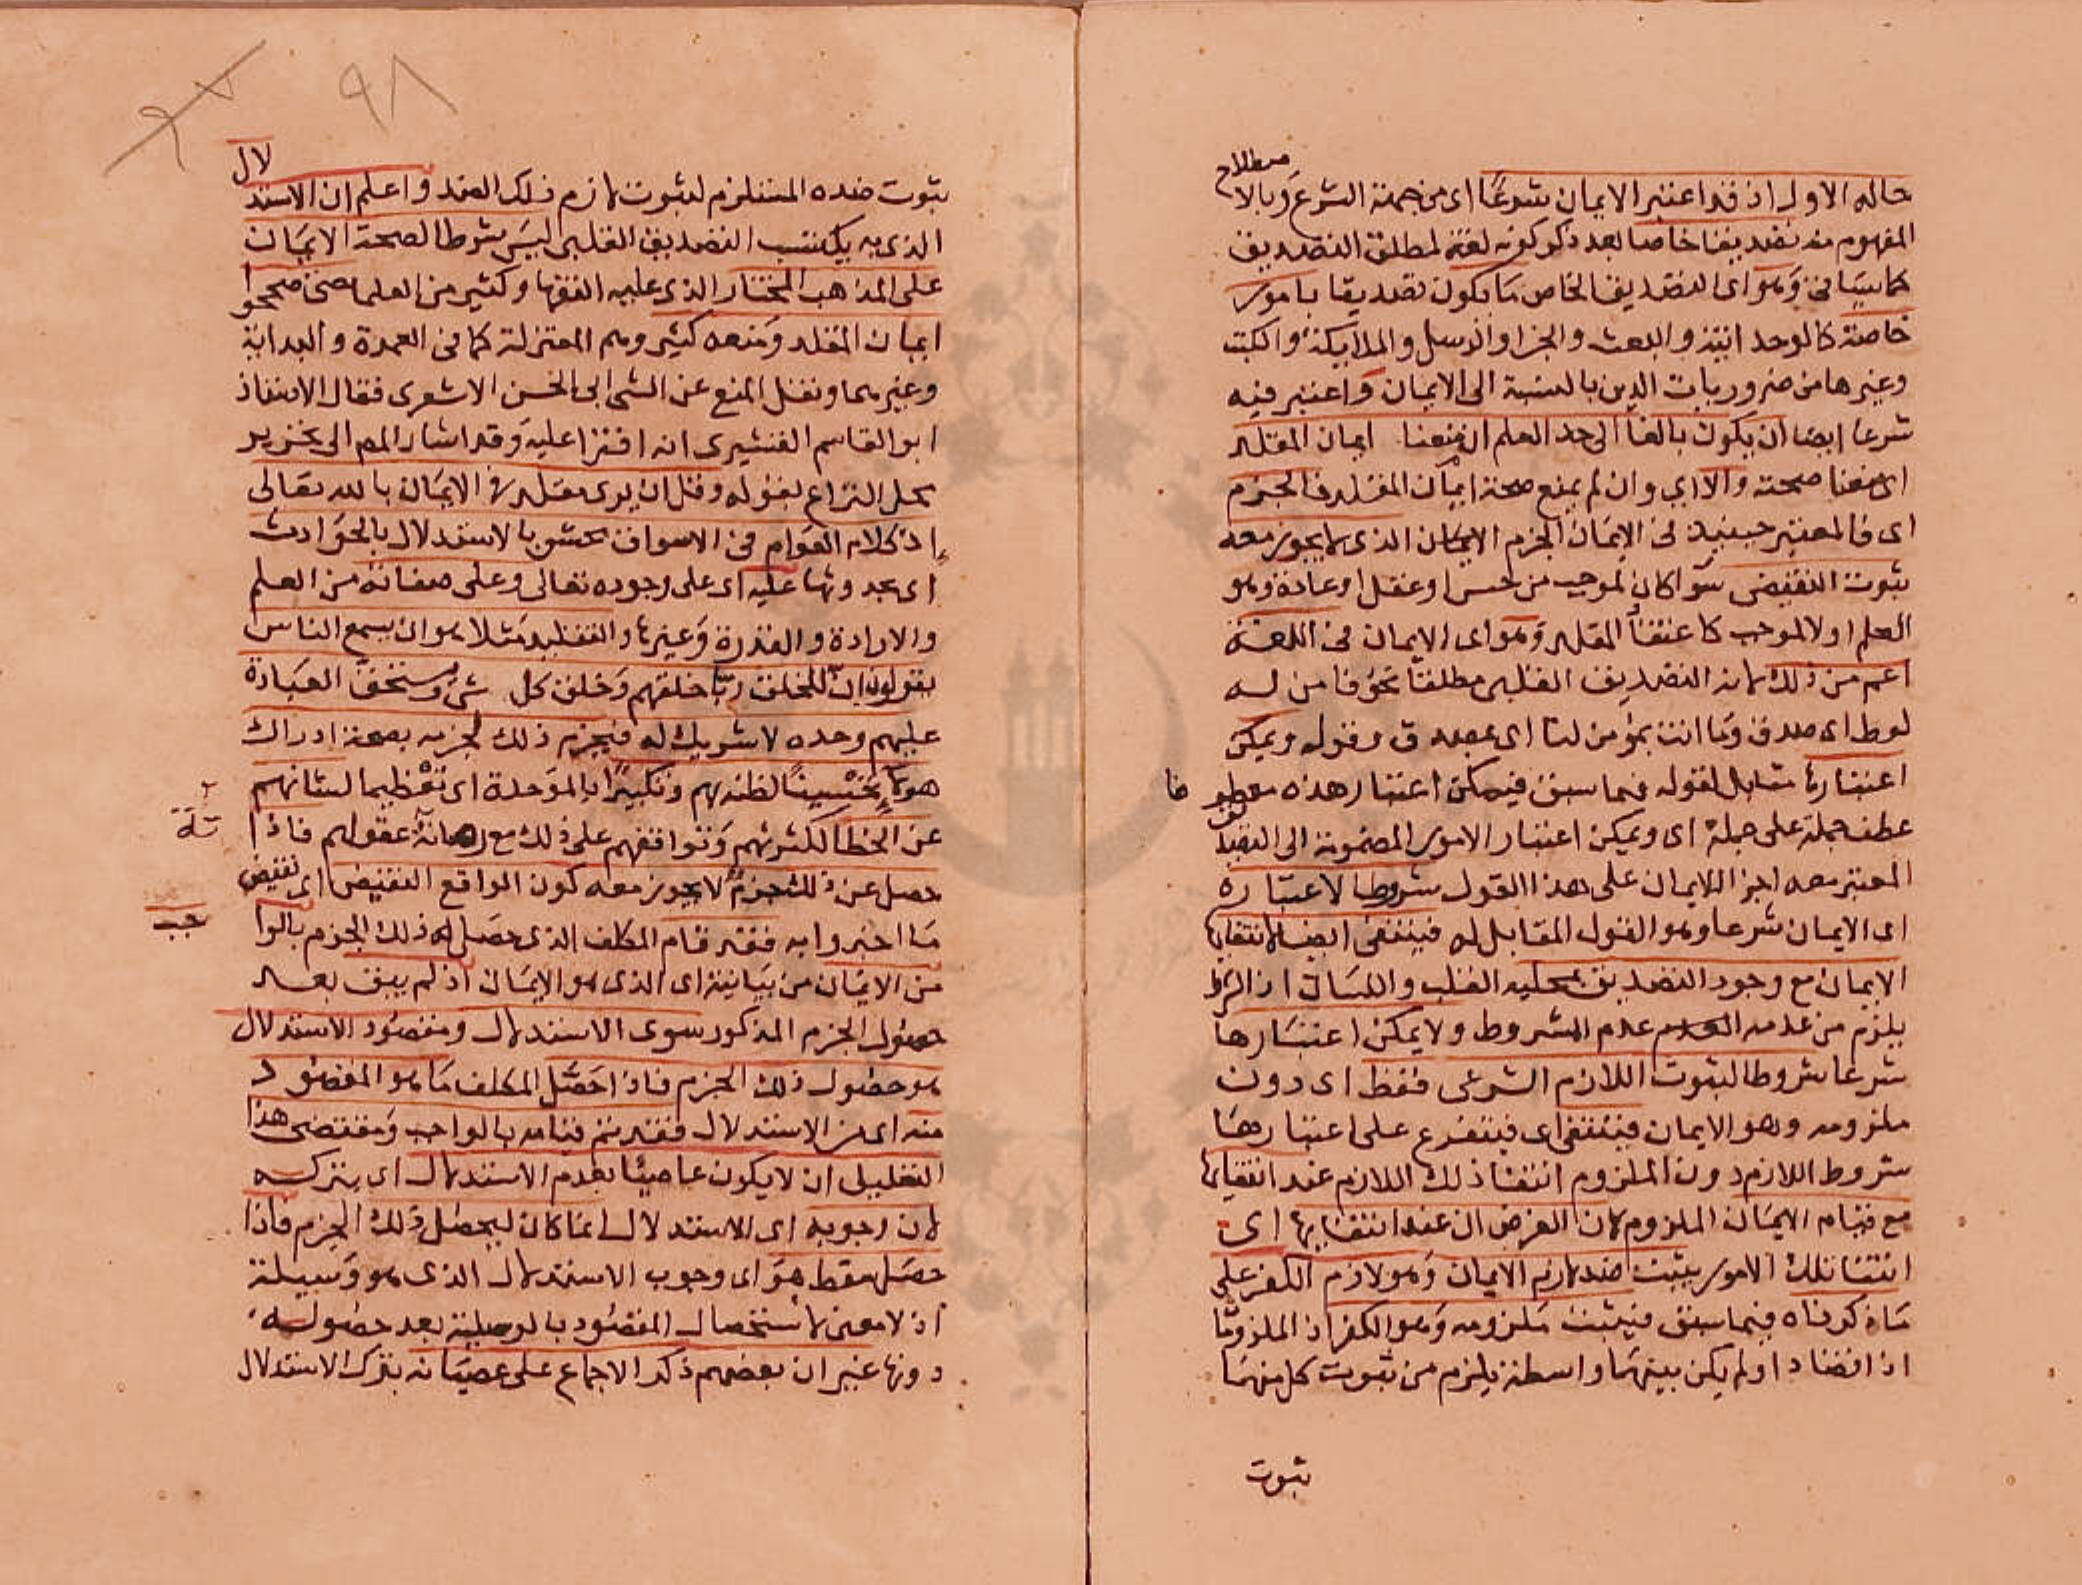 حاله الاول اذ قد اعتبر الايمان شرعا اى من جهة الشرع وبالاصطلاح
المفهوم منه تصديقا خاصا بعد ذكر كونه لغة لمطلق التصديق
كما سياتى وهو اى التصديق الخاص ما يكون تصديقا بامور
خاصة كالوحدانية والبعث والجزا والرسل والملايكة والكتب
وغيرها من ضروريات الدين بالنسبة الى الايمان واعتبر فيه
شرعا ايضا ان يكون بالغا الى حد العلم ان منعنا ايمان المقلد
اى منعنا صحته والا اى وان لم يمنع صحة ايمان المقلد فالجزم
اى فالمعتبر حينيذ فى الايمان الجزم الذى لا يجوز معه
ثبوت النقيض سوا كان لموجب من حس او عقل او عادة وهو
العلم او لا لموجب كاعتقاد المقلد وهو اى الايمان فى اللغة
اعم من ذلك لانه التصديق القلبى مطلقا نحو فامن له
لوط اى صدق وما انت بمؤمن لنا اى بمصدق وقوله ويمكن
اعتبارها مقابل لقوله فيما سبق فيمكن اعتبار هذه معطوفا
عطف جملة على جملة اى ويمكن اعتبار الامور المضمومة الى التصديق
المعتبر معه اجزا للايمان على هذا القول شروطا لاعتباره
اى الايمان شرعا وهو القول المقابل له فينتفى ايضا لانتفايها
الايمان مع وجود التصديق بمحليه القلب واللسان اذ الشرط
يلزم من عدمه عدم المشروط ولا يمكن اعتبارها
شرعا شروطا لثبوت اللازم الشرعى فقط اى دون
ملزومه وهو الايمان فينتفى اى فيتفرع على اعتبارها
شروط اللازم دون الملزوم انتفا ذلك اللازم عند انتفايها
مع قيام الايمان الملزوم لان الفرض ان عند انتفايها اى
انتفا تلك الامور يثبت ضد لازم الايمان وهو لازم الكفر على
ما ذكرناه فيما سبق فيثبت ملزومه وهو الكفر اذ الملزوما
اذا تضادا ولم يكن بينهما واسطة يلزم من ثبوت كل منهما
ثبوت
٩٨
ثبوت ضده المستلزم لثبوت لازم ذلك الضد واعلم ان الاستدلال
الذى به يكتسب التصديق القلبى ليس شرطا لصحة الايمان
على المذهب المختار الذى عليه الفقها وكثير من العلما حتى صححوا
ايمان المقلد ومنعه كثير وهم المعتزلة كما فى العمدة والبداية
وغيرهما ونقل المنع عن الشيخ ابى الحسن الاشعرى فقال الاستاذ
ابو القاسم القشيرى انه افترا عليه وقد اشار المص الى تحرير
محل النزاع بقوله وقل ان يرى مقلد فى الايمان بالله تعالى
اذ كلام العوام فى الاسواق محشو بالاستدلال بالحوادث
اى بحدوثها عليه اى على وجوده تعالى وعلى صفاته من العلم
والارادة والقدرة وغيرها والتقليد مثلا هو ان يسمع الناس
يقولون ان للخلق ربا خلقهم وخلق كل شىء ويستحق العبادة
عليهم وحده لا شريك له فيجزم ذلك لجزمه بصحة ادراك
هولاء تحسينا لظنه بهم وتكبيرا بالموحدة اى تعظيما لشانهم
عن الخطا لكثرتهم وتوافقهم على ذلك مع رصانة عقولهم فاذا
حصل عن ذلك جزم لا يجوز معه كون الواقع النقيض اى نقيض
ما اخبروا به فقد قام المكلف الذى حصل له ذلك الجزم بالواجب
من الايمان من بيانية اى الذى هو الايمان اذ لم يبق بعد
حصول الجزم المذكور سوى الاستدلال ومقصود الاستدلال
هو حصول ذلك الجزم فاذا حصل المكلف ما هو المقصود
منه اى من الاستدلال فقد تم قيامه بالواجب ومقتضى هذا
التعليل ان لا يكون عاصيا بعدم الاستدلال اى بتركه
لان وجوبه اى الاستدلال انما كان ليحصل ذلك الجزم فاذا
حصل سقط هو اى وجوب الاستدلال الذى هو وسيلة
اذ لا معنى لاستحصال المقصود بالوسيلة بعد حصوله
دونها غير ان بعضهم ذكر الاجماع على عصيانه بترك الاستدلال